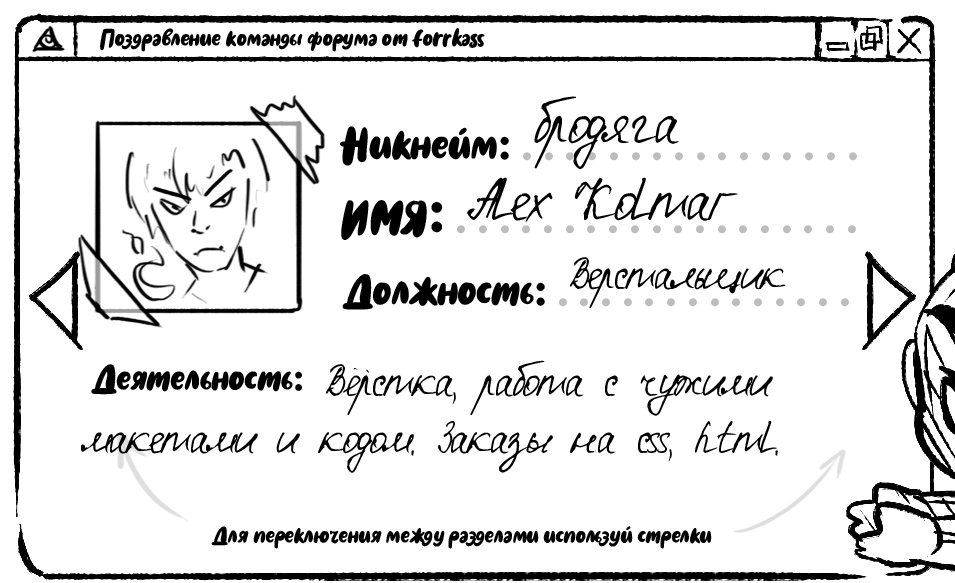 Поздравление команды форума от forrkass
Никнейм: бродяга
имя: Alex Kolmar
Должность: Верстальщик
Деятельность: Вёрстка, работа с чужими
макетами и кодом. Заказы на css, html.
Для переключения между разделами используй стрелки